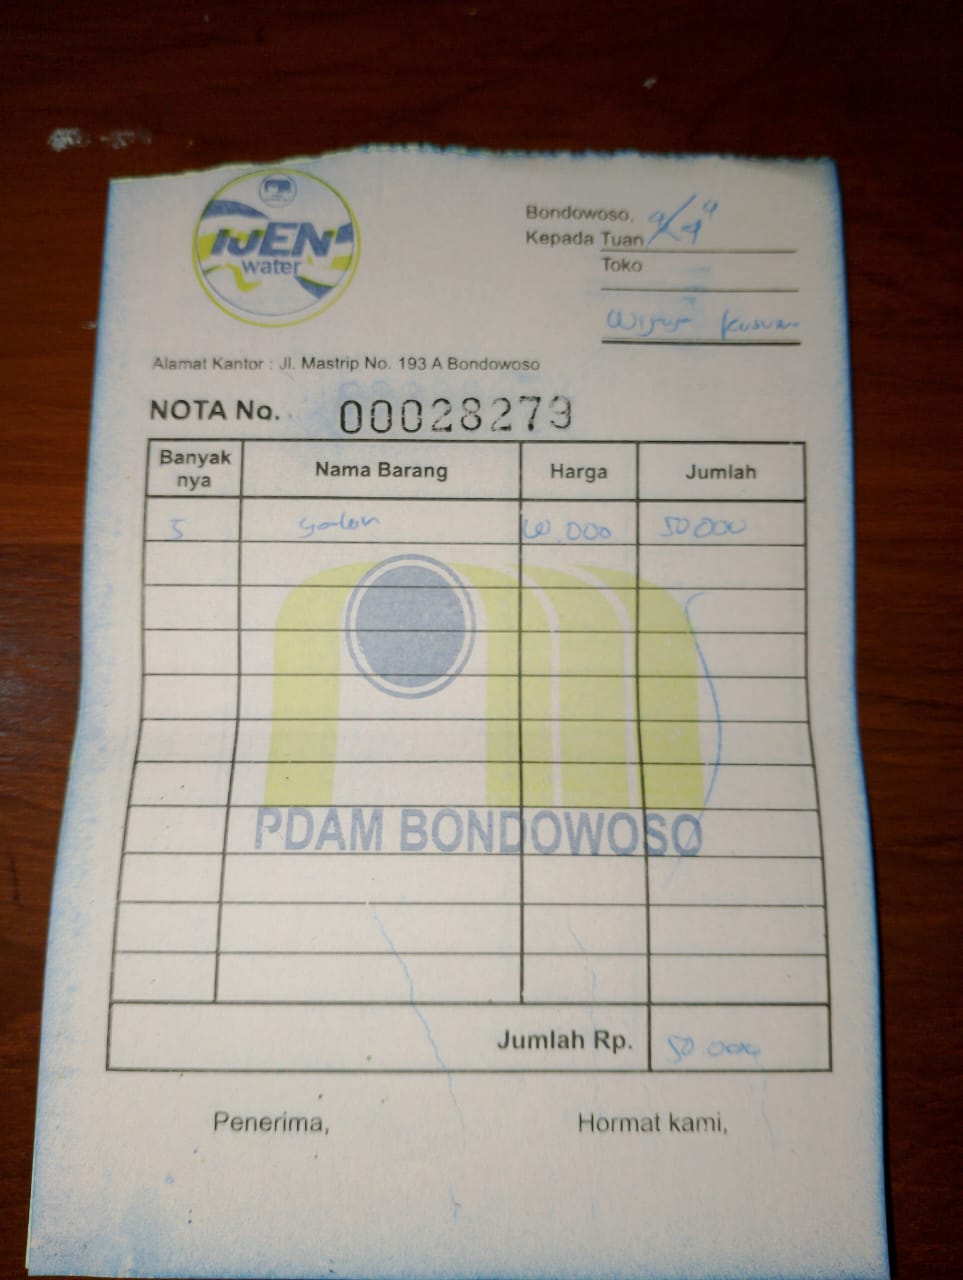 IJEN
water
Bondowoso,
Kepada Tuan
Toko
Wijaya Kusuma
Alamat Kantor : Jl. Mastrip No. 193 A Bondowoso
NOTA No. 00028279
Banyak nya Nama Barang Harga Jumlah
5 galon 10.000 50.000
PDAM BONDOWOSO
Jumlah Rp. 50.000
Penerima, Hormat kami,